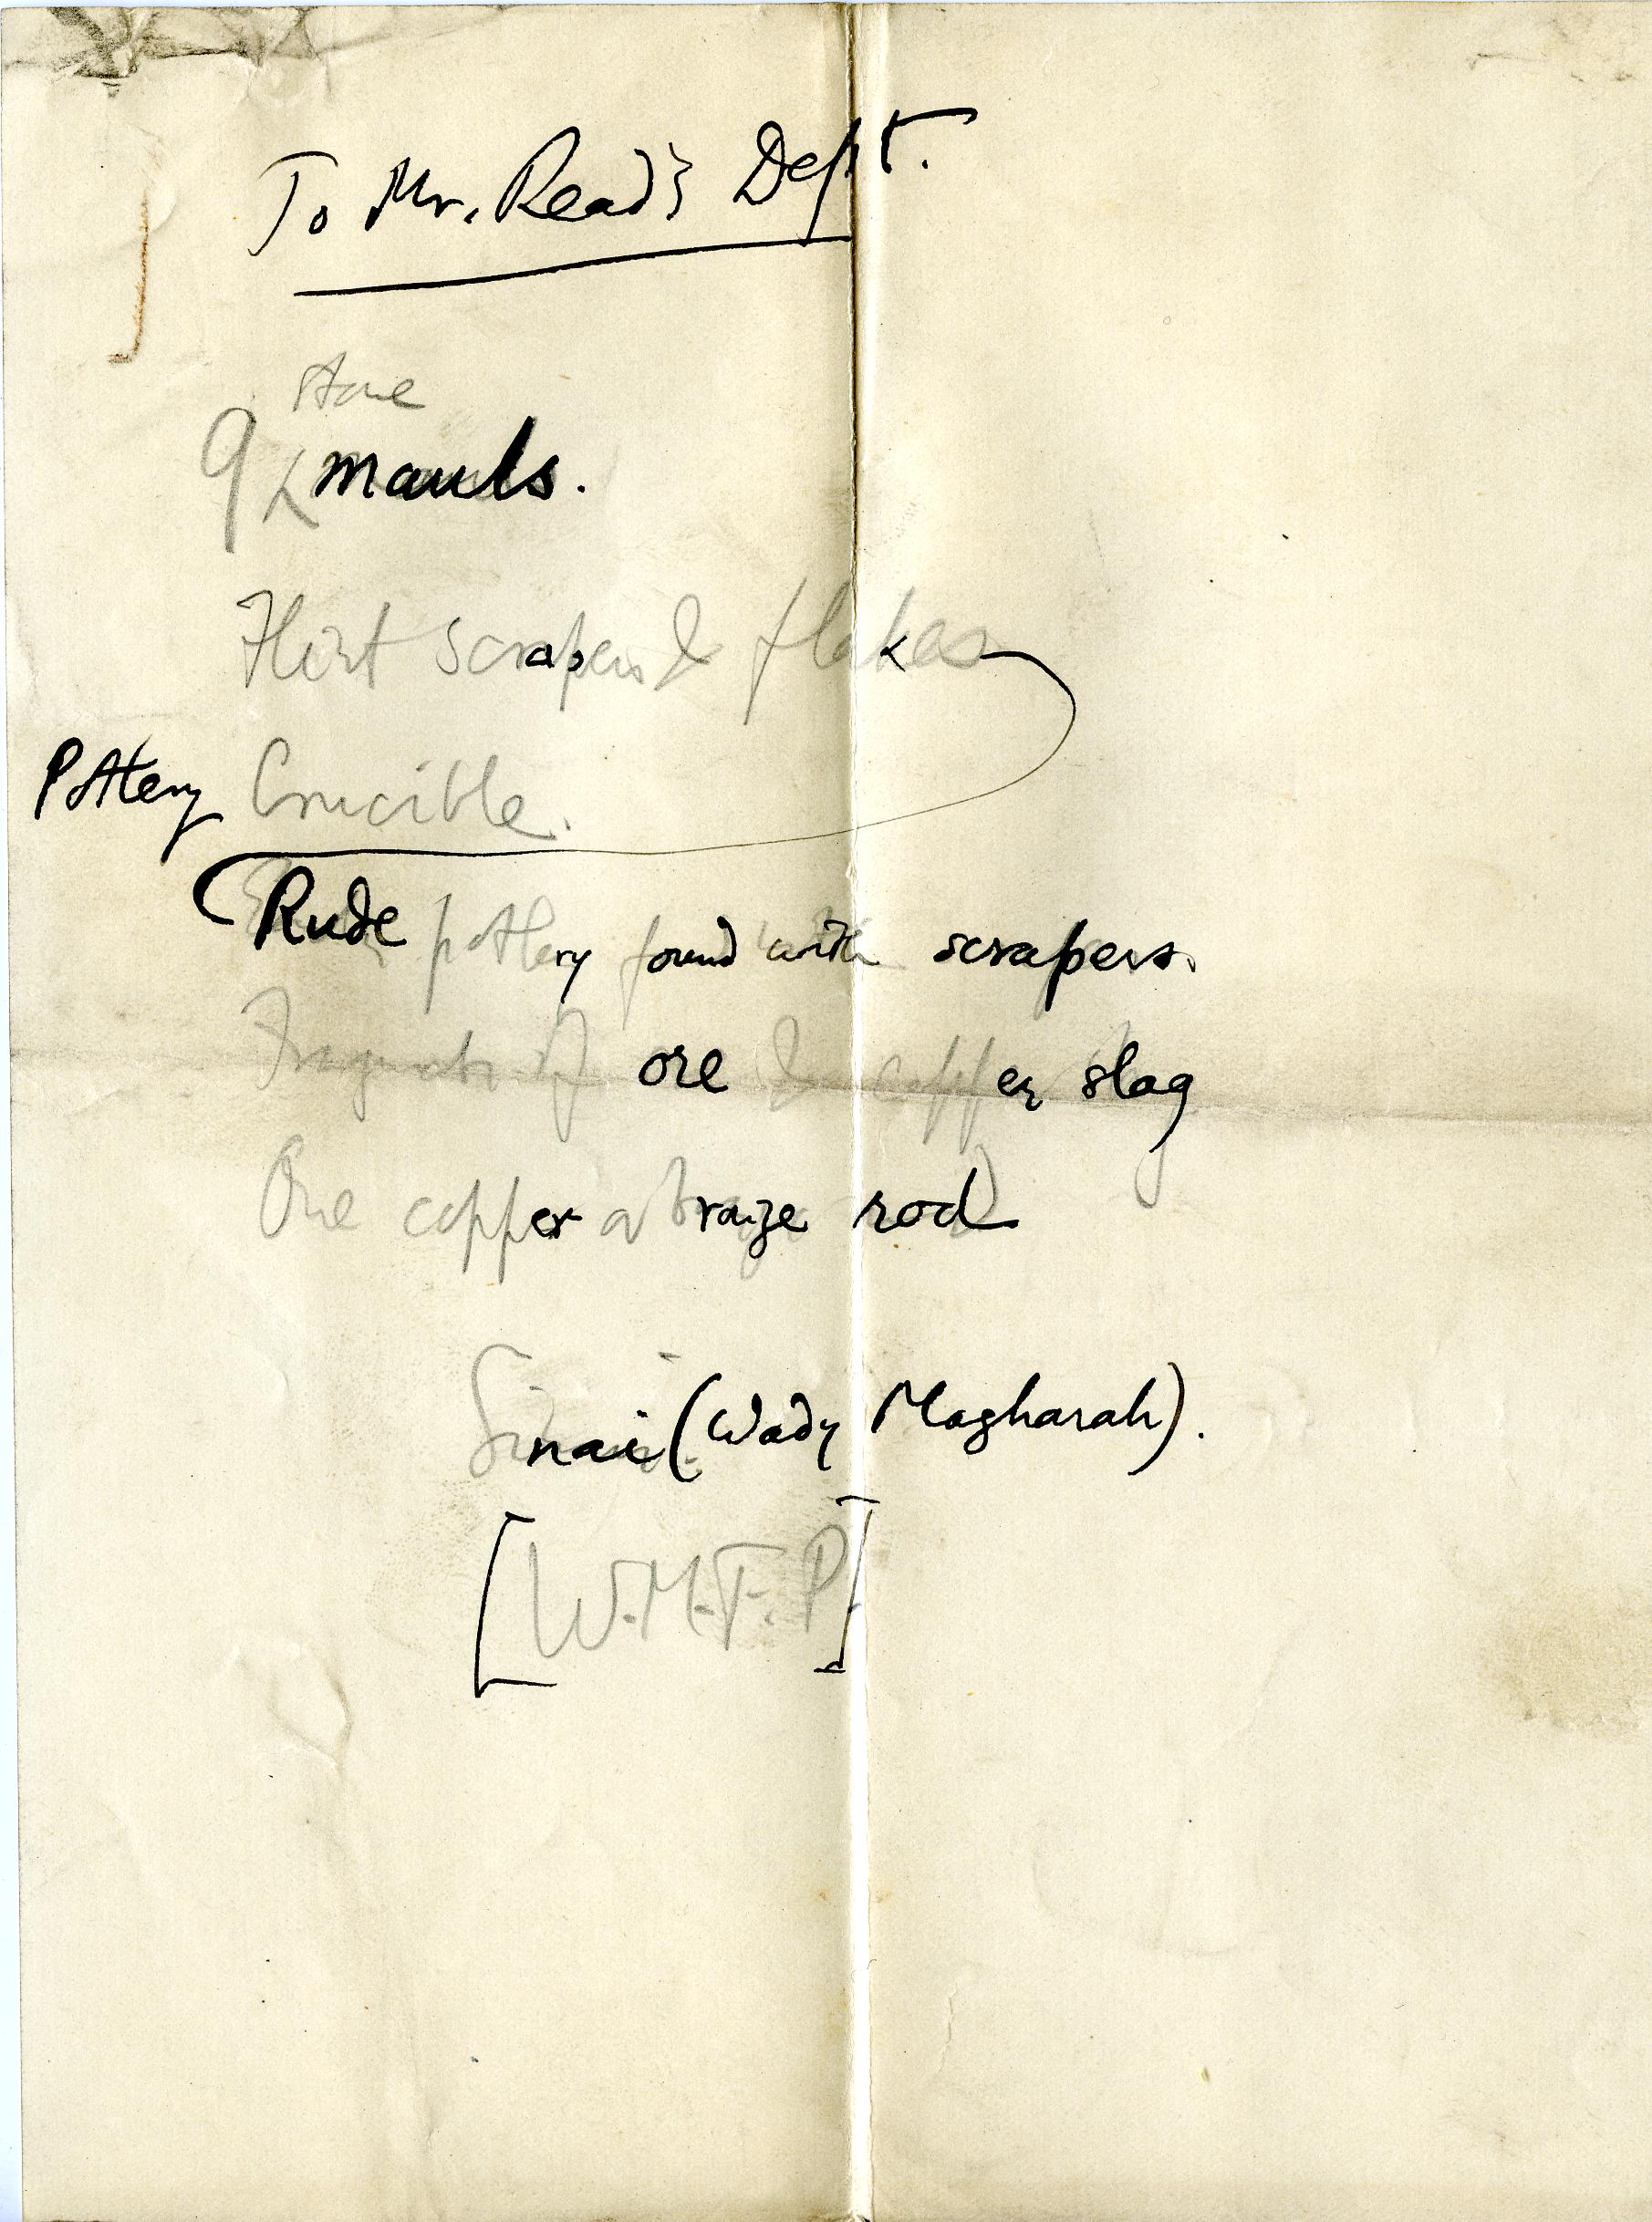 To Mr. Read's Dept.
stone
9 mauls.
Flint scrapers & flakes
Pottery Crucible.
Rude pottery found with scrapers.
Fragments of ore & copper slag
One copper or bronze rod
Sinai (Wady Magharah).
[W.M.F.P.]